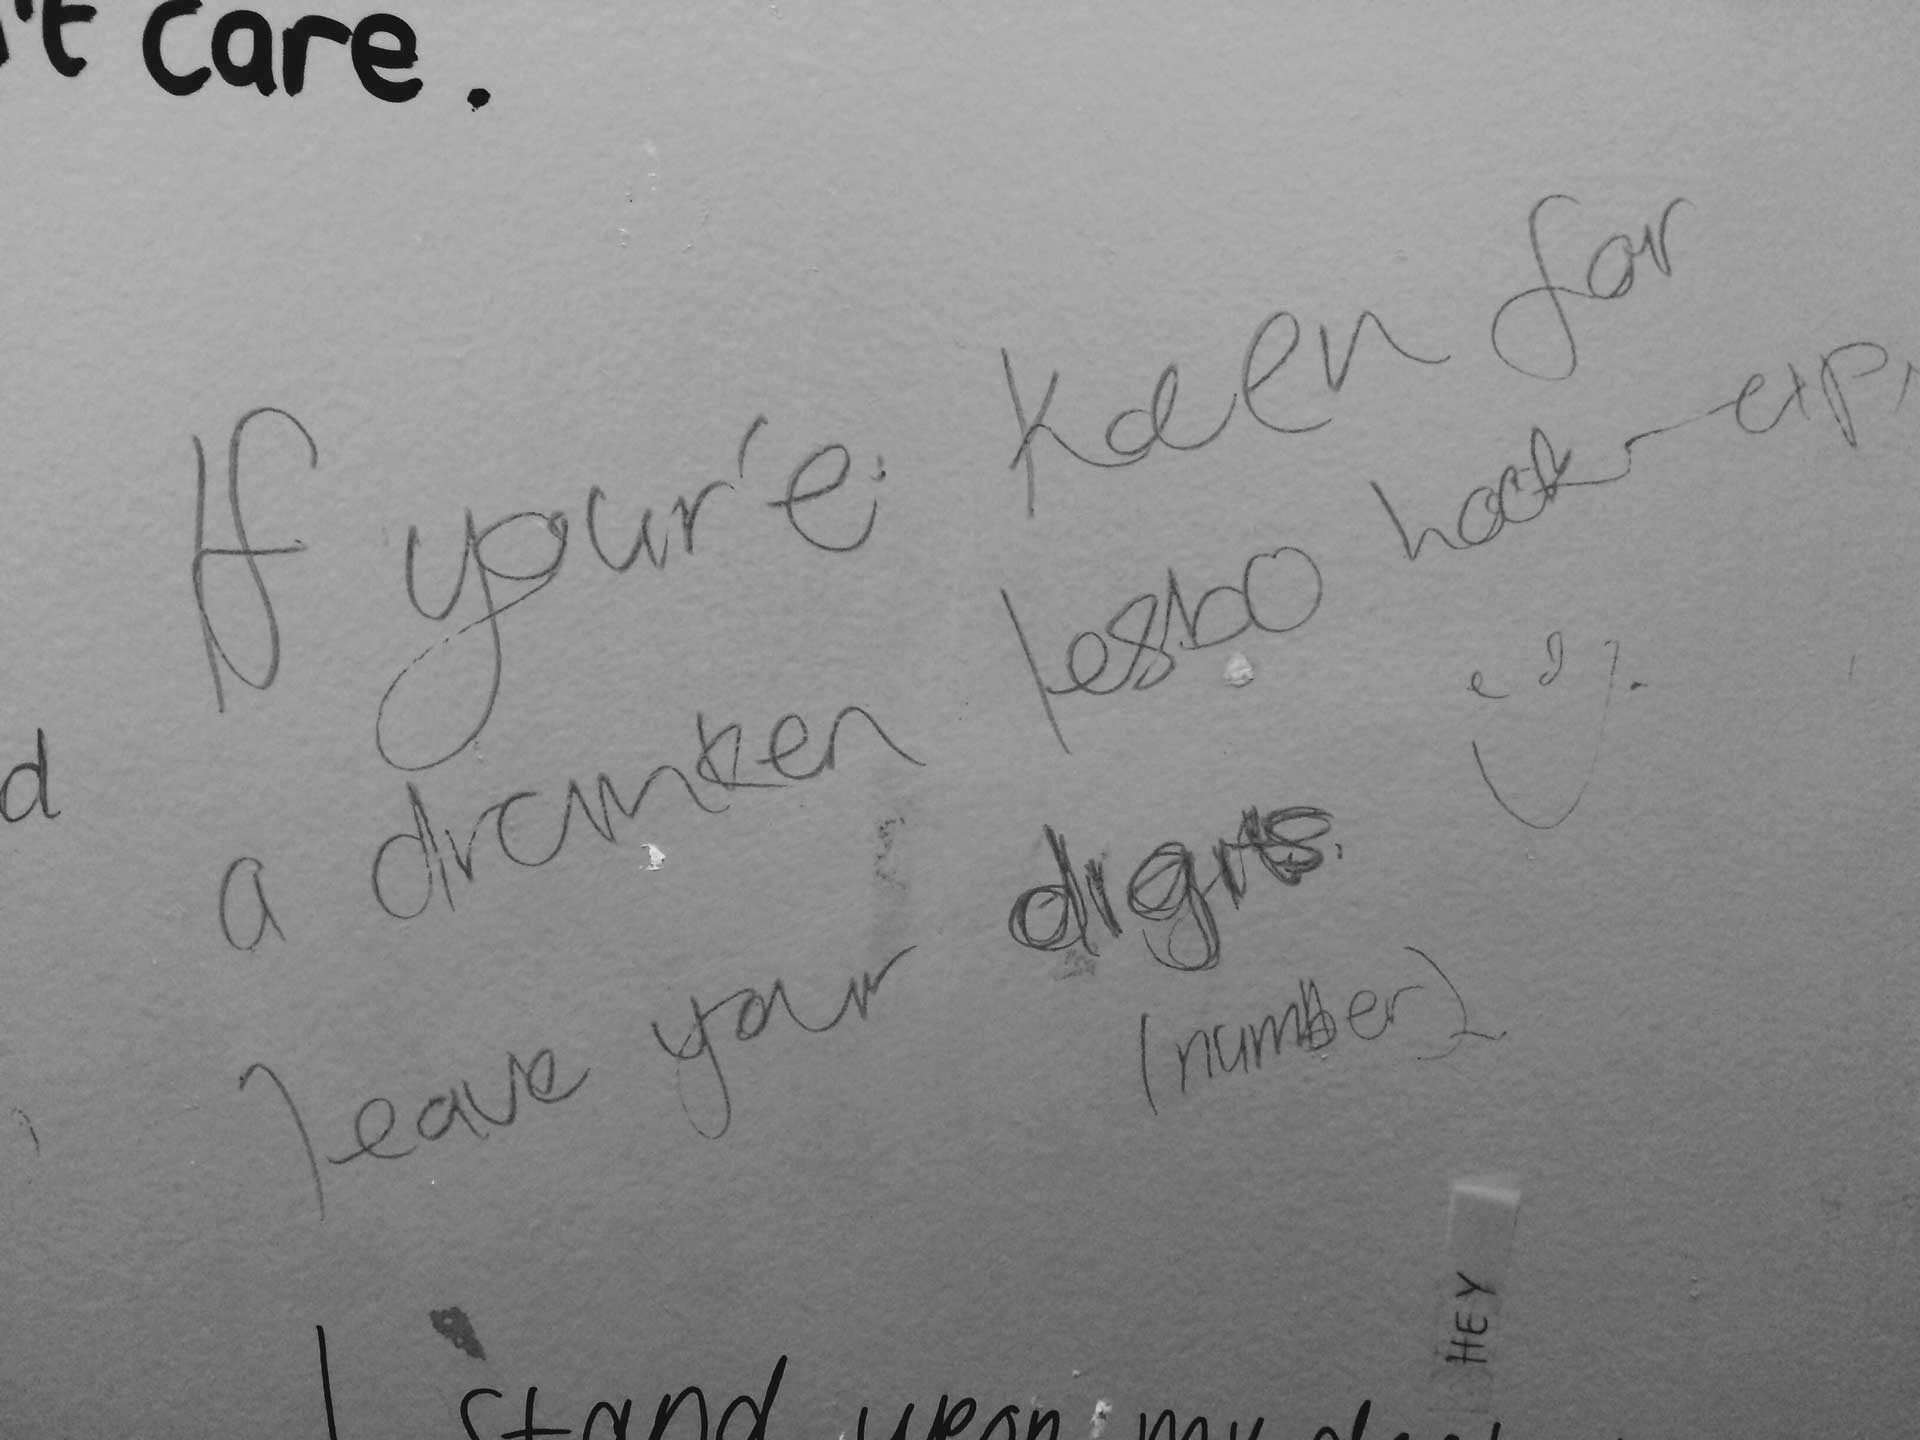 't care.
If your'e keen for
a drunken lesbo hook
d
leave your digits.
(number)
HEY
I stand upon my